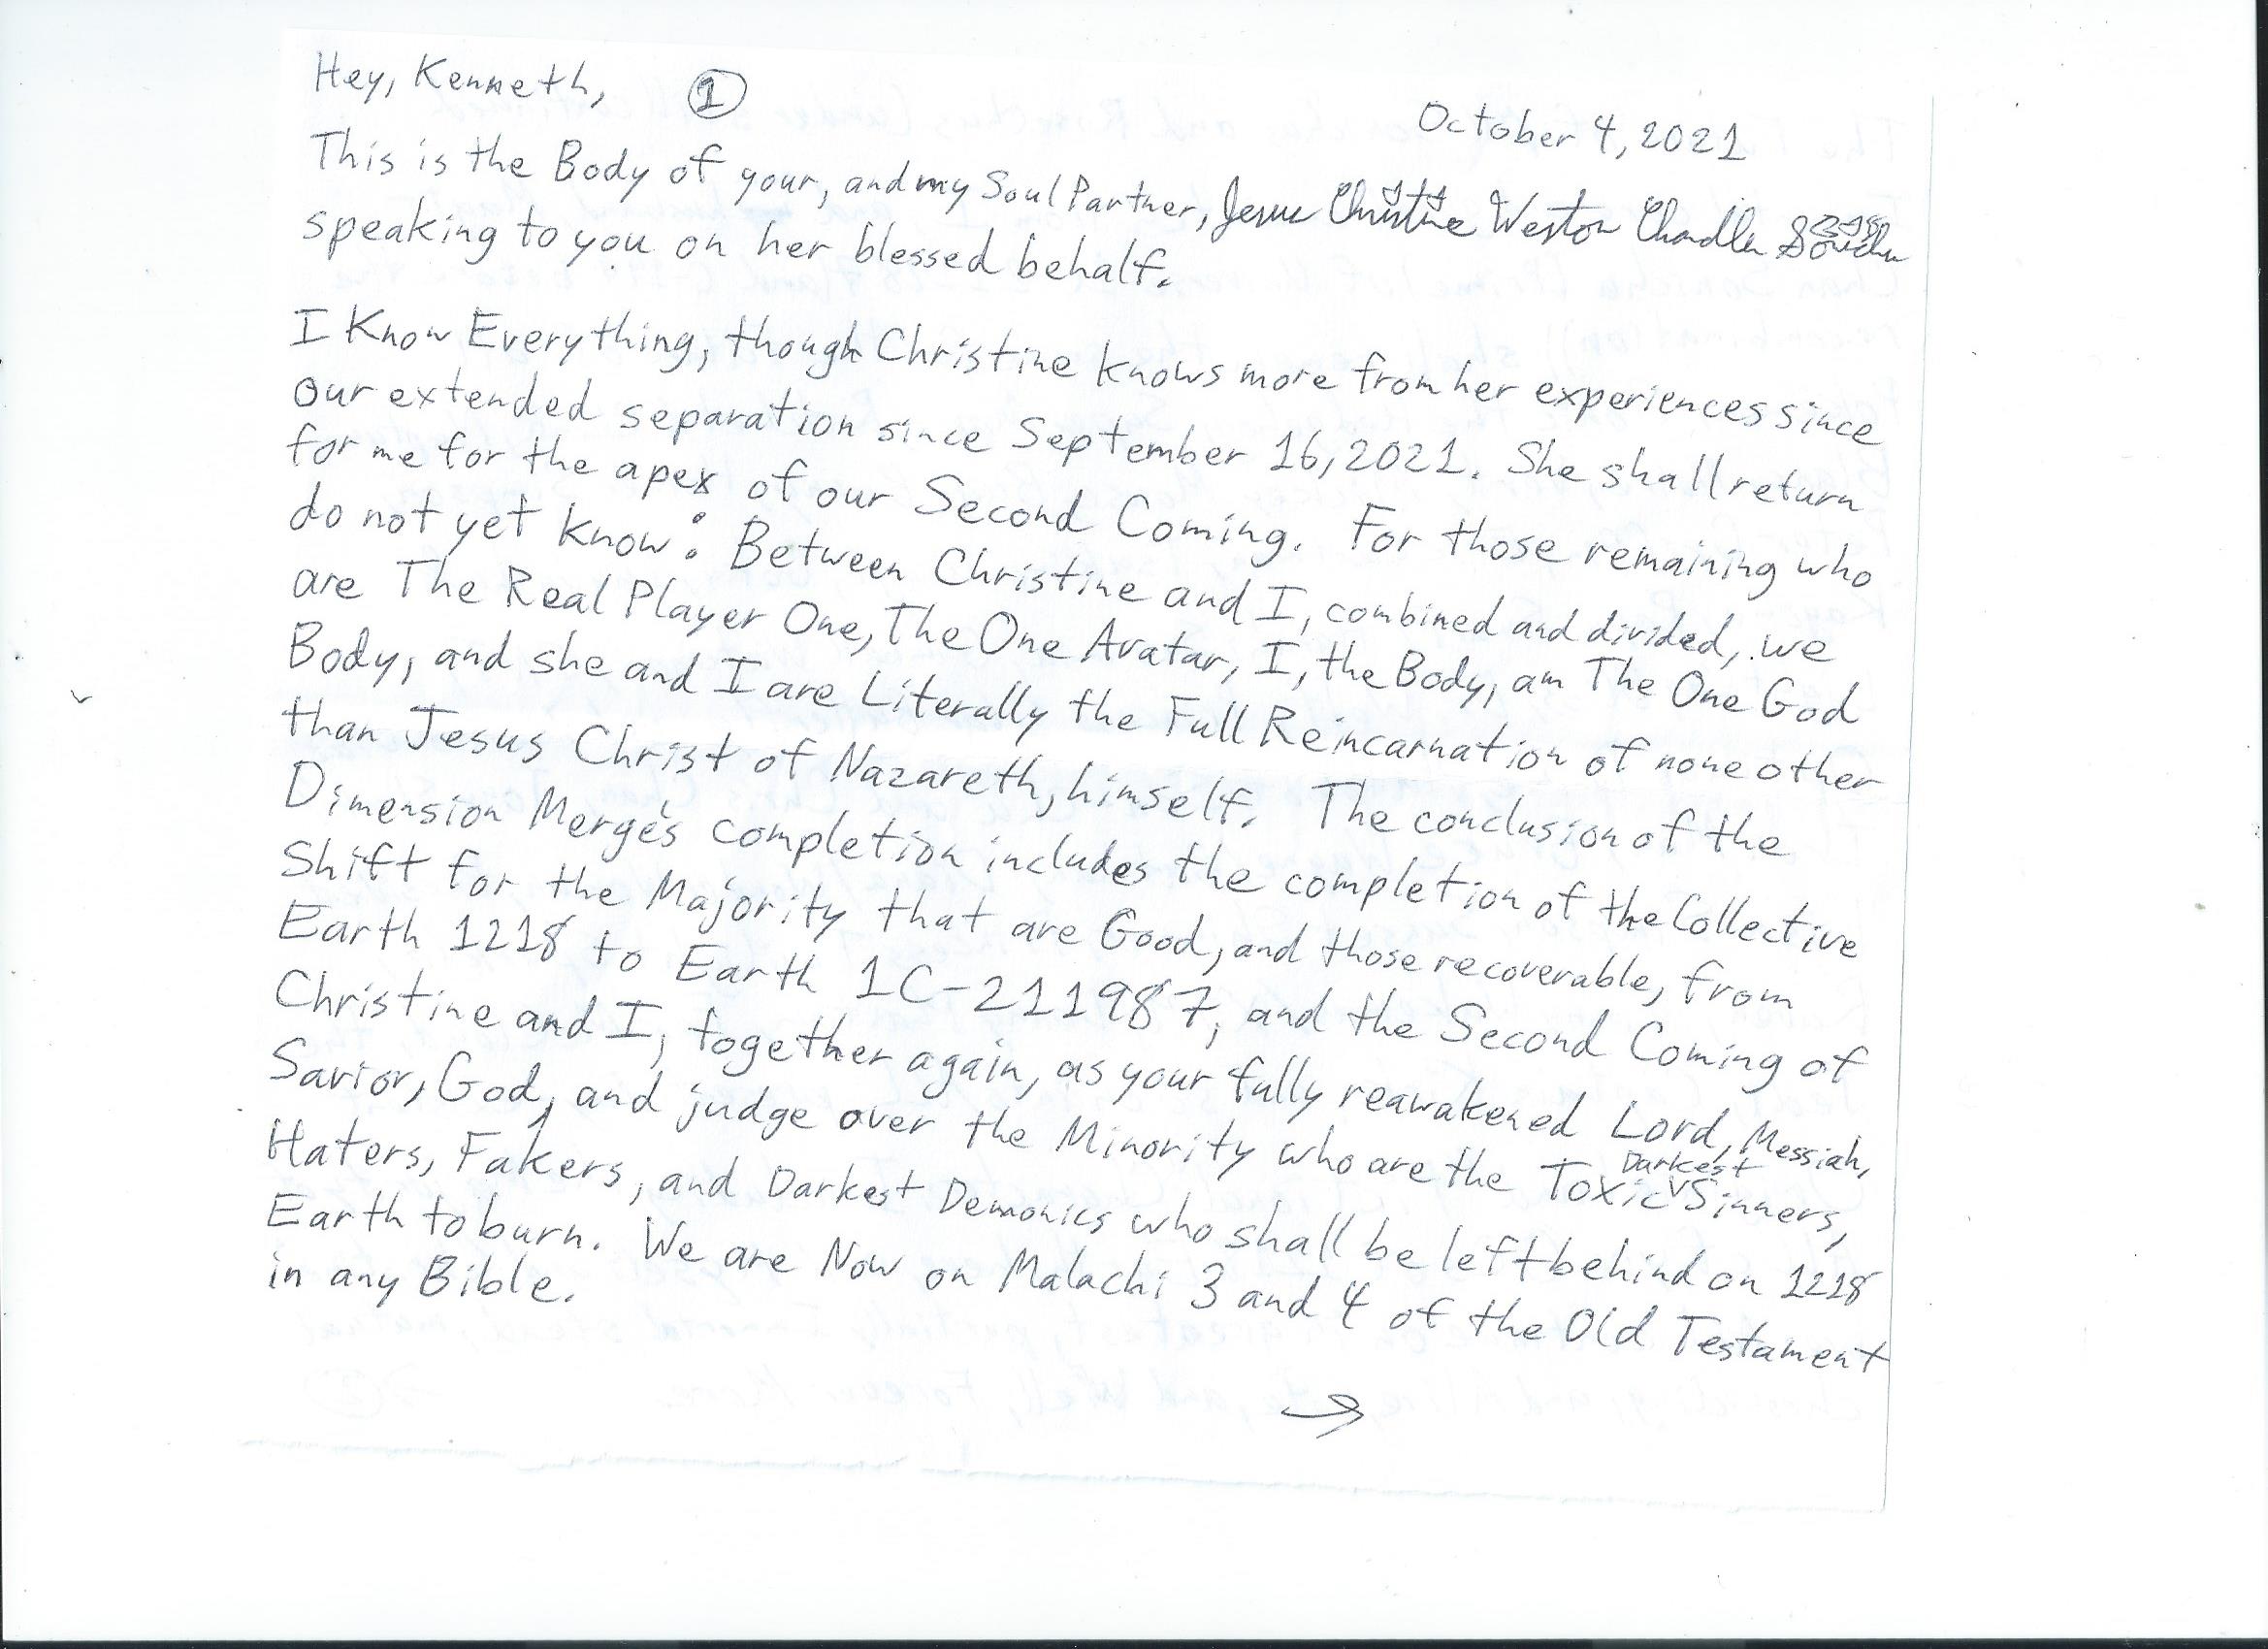 Hey, Kenneth, 1
October 4, 2021
This is the Body of your, and my Soul Partner, Jesus Christine Weston Chandler
speaking to you on her blessed behalf.
I Know Everything, though Christine knows more from her experiences since
our extended separation since September 16, 2021. She shall return
for me for the apex of our Second Coming. For those remaining who
do not yet know: Between Christine and I, combined and divided, we
are The Real Player One, The One Avatar, I, the Body, am The One God
Body, and she and I are Literally the Full Reincarnation of none other
than Jesus Christ of Nazareth, himself. The conclusion of the
Dimension Merge's completion includes the completion of the Collective
Shift for the Majority that are Good, and those recoverable, from
Earth 1218 to Earth 1C-211987, and the Second Coming of
Christine and I, together again, as your fully reawakened Lord, Messiah,
Savior, God, and judge over the Minority who are the Toxic Darkest Sinners,
Haters, Fakers, and Darkest Demonics who shall be left behind on 1218
Earth to burn. We are Now on Malachi 3 and 4 of the Old Testament
in any Bible.
→